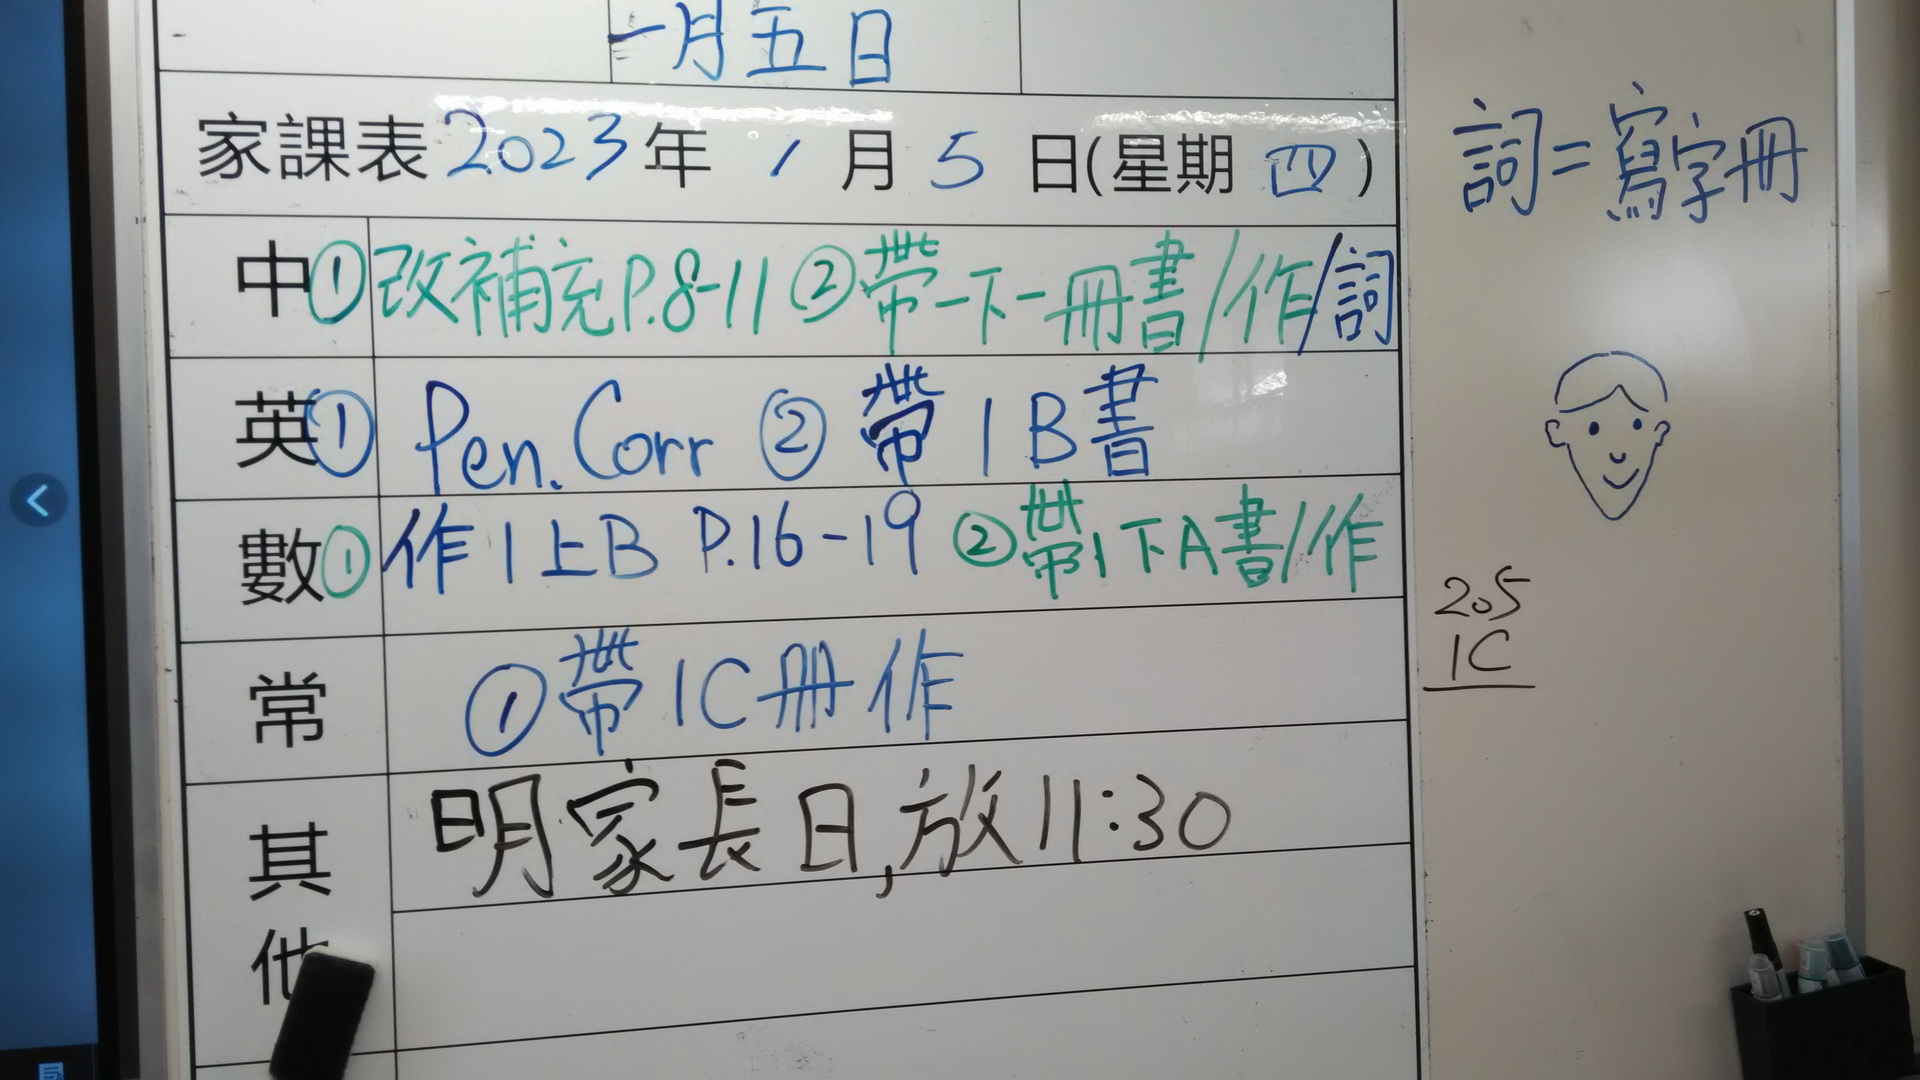 一月五日
家課表 2023年 1月5日(星期四)
中 ①改補充P.8-11 ②帶一下一冊書/作/詞
英 ① Pen. Corr ② 帶1B書
數 ① 作1上B P.16-19 ②帶1下A書/作
常 ①帶1C冊作
其他 明家長日,放11:30
詞=寫字冊
205
1C